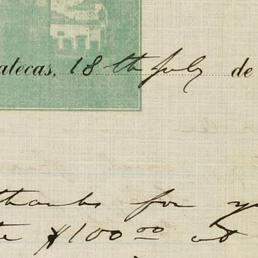 atecas, 18th July de
thanks for y
$100.00 at